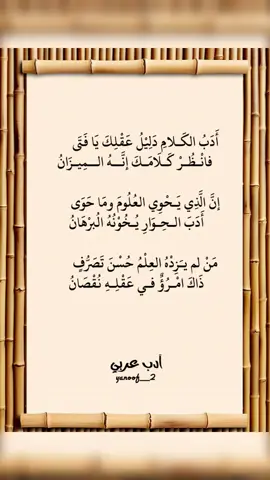 أَدَبُ الكَلامِ دَلِيْلُ عَقْلِكَ يَا فَتَى
فانْظُرْ كَلَامَكَ إنَّهُ المِيزَانُ
إنَّ الَّذِي يَحْوِي العُلُومَ ومَا حَوَى
أَدَبَ الحِوَارِ يُخُوْنُهُ الْبُرْهَانُ
مَنْ لم يَزِدْهُ العِلْمُ حُسْنَ تَصَرُّفٍ
ذَاكَ امْرُؤٌ في عَقْلِهِ نُقْصَانُ
ادب عربي
yanoof__2